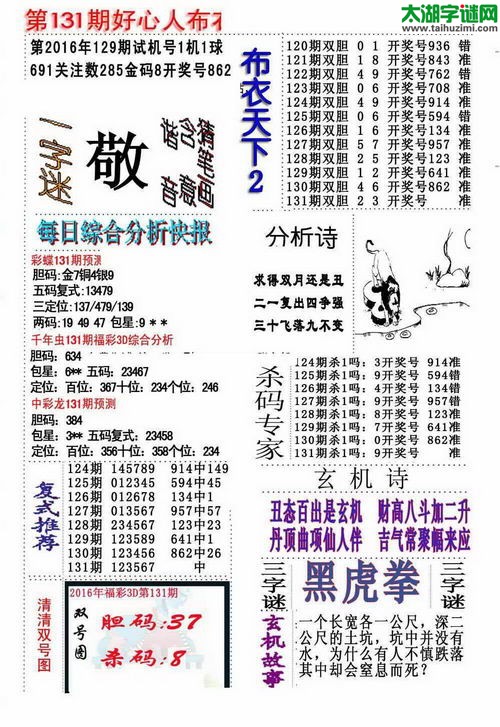 太湖字谜网
www.taihuzimi.com
第131期好心人布衣
第2016年129期试机号1机1球
691关注数285金码8开奖号862
一字迷
敬
猜含猜
猪笔画
意音
布衣天下2
120期双胆 0 1 开奖号936 错
121期双胆 1 8 开奖号843 准
122期双胆 4 9 开奖号762 错
123期双胆 0 6 开奖号708 准
124期双胆 4 9 开奖号914 准
125期双胆 0 6 开奖号594 错
126期双胆 1 6 开奖号134 准
127期双胆 5 7 开奖号957 准
128期双胆 2 5 开奖号123 准
129期双胆 1 2 开奖号641 准
130期双胆 4 6 开奖号862 准
131期双胆 2 3 开奖号 准
每日综合分析快报
彩蝶131期预测
胆码:金7铜4银9
五码复式:13479
三定位:137/479/139
两码:19 49 47 包星:9**
千年虫131期福彩3D综合分析
胆码: 634
包星: 6** 五码: 23467
定位: 百位: 367十位: 234个位: 246
中彩龙131期预测
胆码: 384
包星: 3** 五码复式: 23458
定位: 百位: 356十位: 358个位: 234
分析诗
求得双月还是丑
二一复出四争强
三十飞落九不变
杀码专家
124期杀1吗: 3开奖号 914准
125期杀1吗: 9开奖号 594错
126期杀1吗: 4开奖号 134错
127期杀1吗: 9开奖号 957错
128期杀1吗: 8开奖号 123准
129期杀1吗: 7开奖号 641准
130期杀1吗: 0开奖号 862准
131期杀1吗: 6开奖号 准
复式推荐
124期 145789 914中149
125期 012345 594中45
126期 012678 134中1
127期 013567 957中57
128期 234567 123中23
129期 123454 641中641
130期 123456 862中26
131期 123567 中
玄机诗
丑态百出是玄机 财高八斗加二升
丹顶曲项仙人伴 吉气常聚幅来应
三字谜
黑虎拳
三字谜
清清双号图
2016年福彩3D第131期
双号图
胆码:37
杀码:8
玄机故事
一个长宽各一公尺，深二
公尺的土坑，坑中并没有
水，为什么有人不慎跌落
其中却会窒息而死？